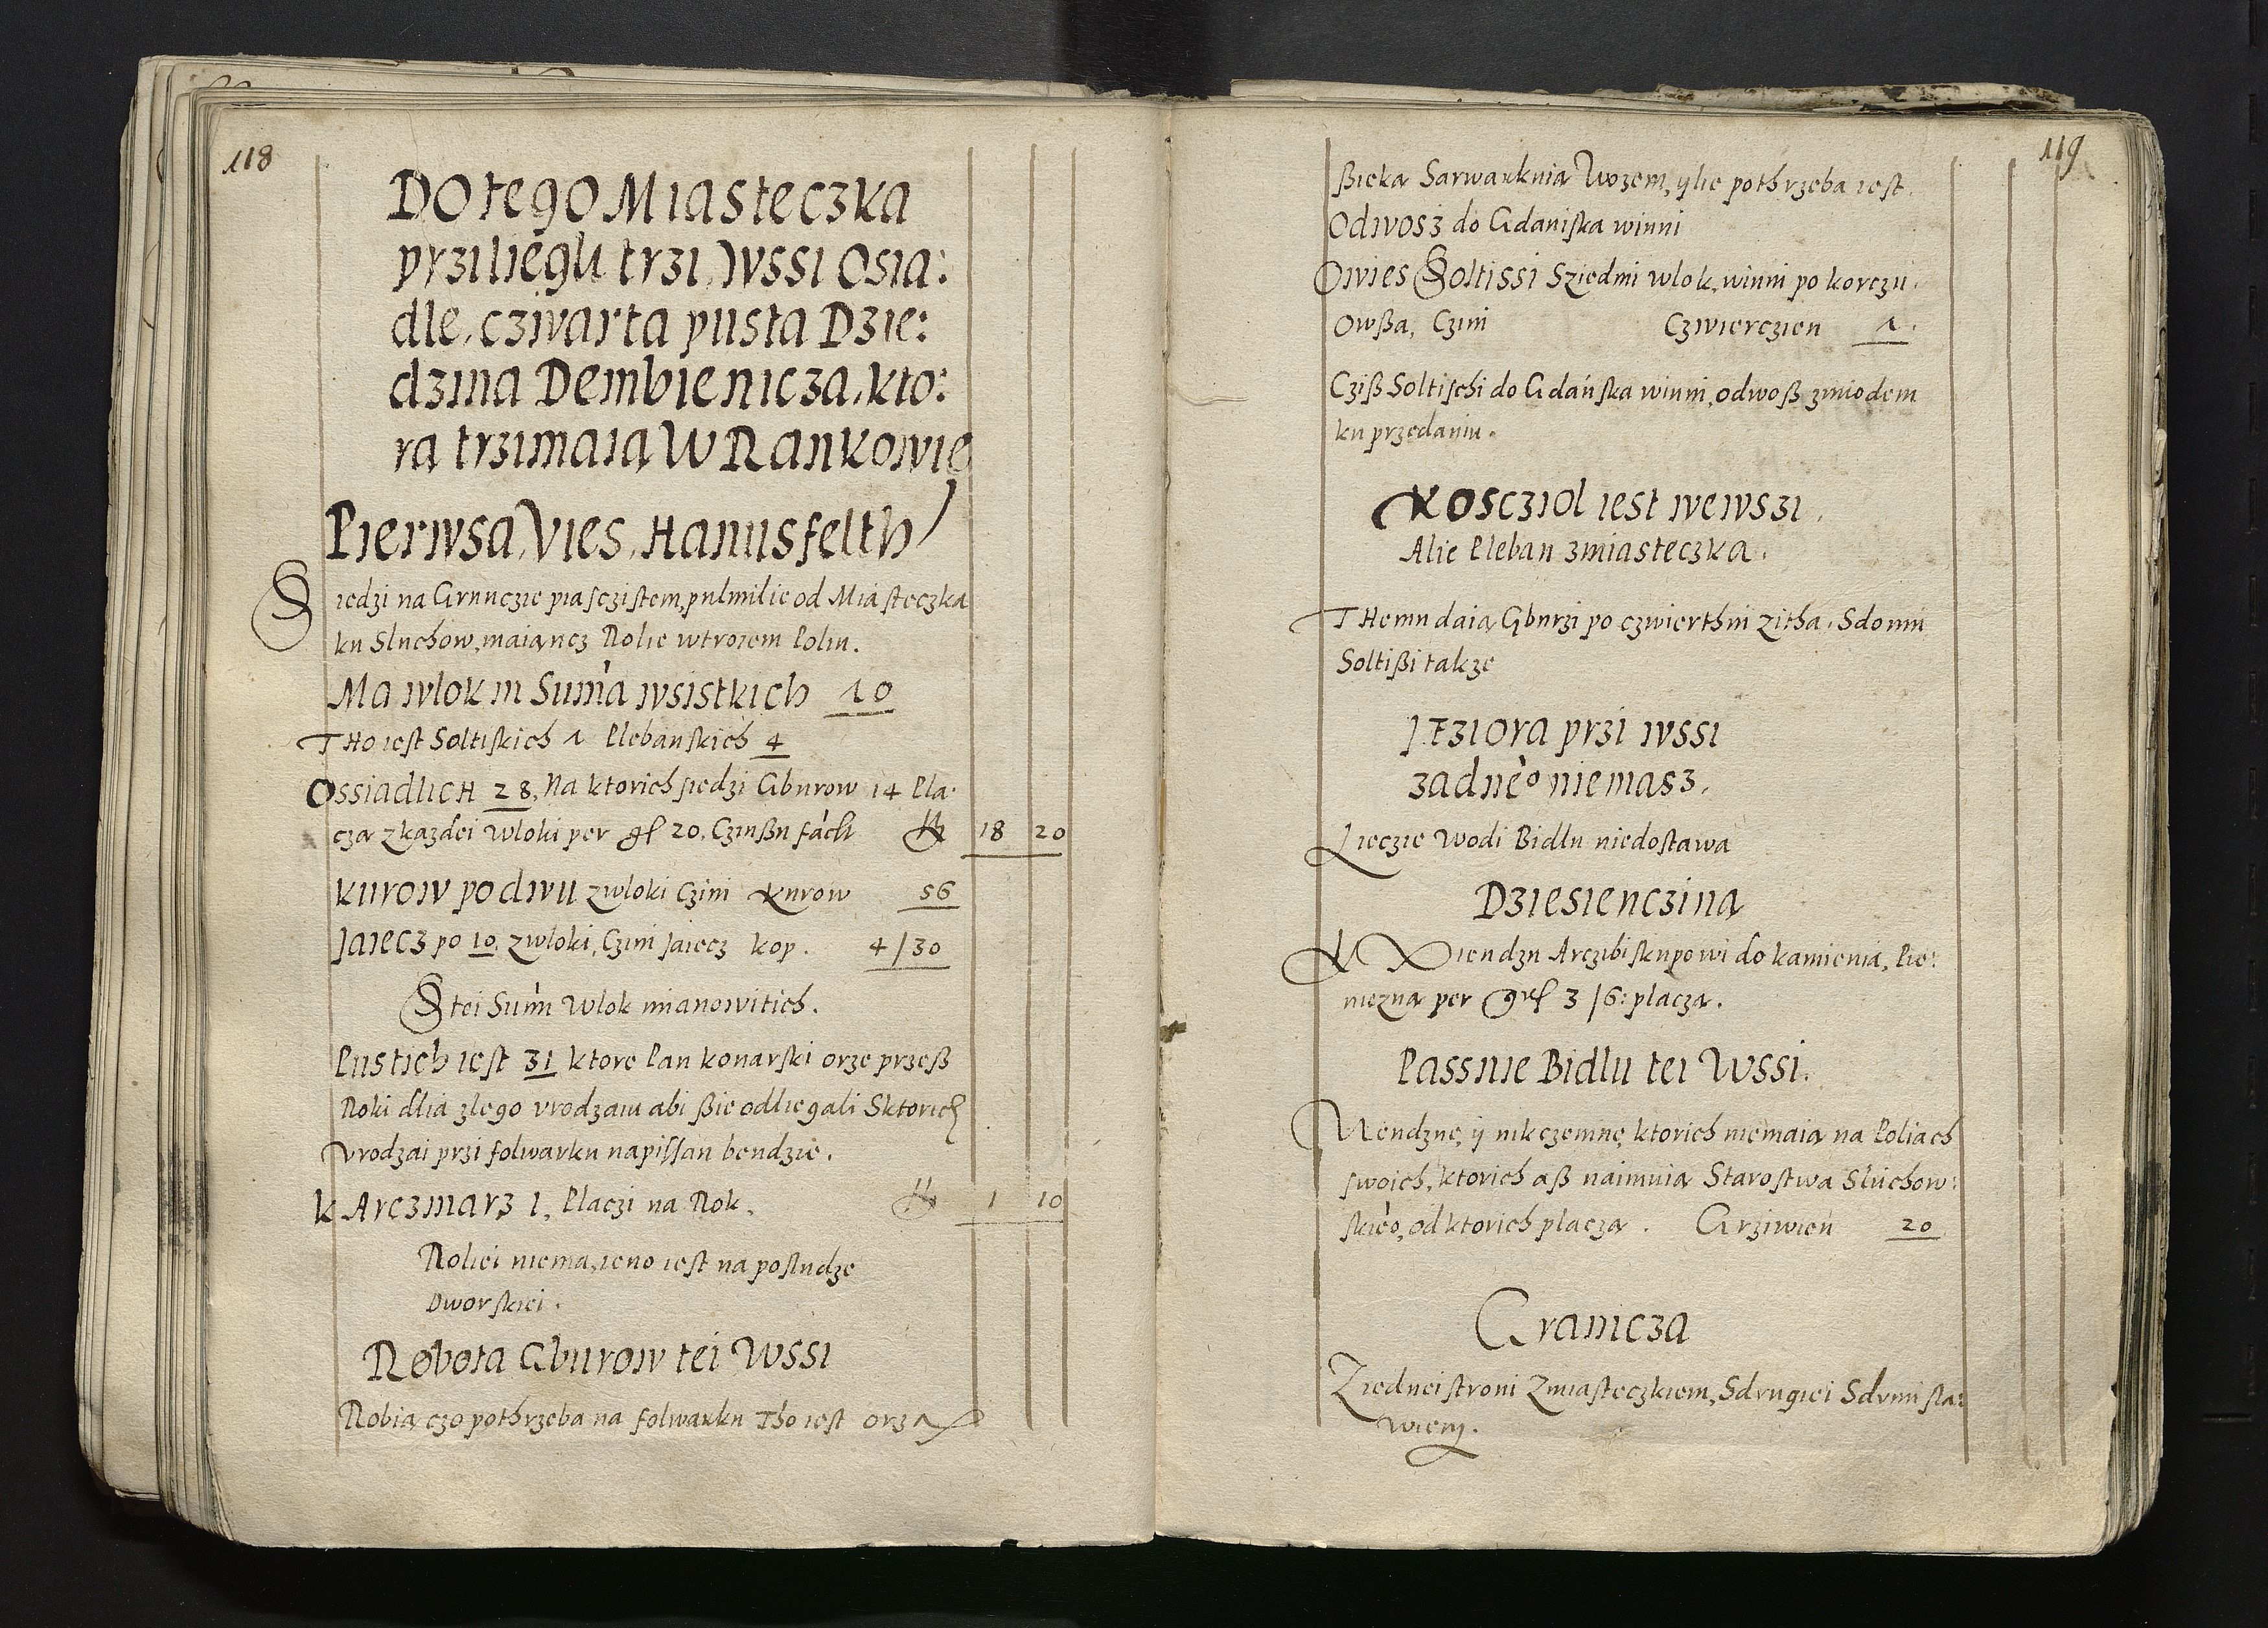 118
DO tego Miasteczka
przilięgu trzi wssi Osia:
dle, czwarta pusta Dzie:
dzina Dembienicza, kto:
rą trzimaią W Rankowie
Pierwsa Vies, Hanusfelth
Siedzi na Grunczie piasczistem, pulmilie od Miasteczka
ku Sluchow, maiąncz Rolie wtroiem Poliu.
Ma wlok in Suma wsistkich 10
THo iest Soltiskich 1 Plebanskich 4
OssiadlicH 28, Na ktorich siedzi Gburow 14 Pla:
czą zkazdei Wloki per gl 20, Czinßu facit 18 20
Kurow po dwu zwloki Czini Kurow 56
Jaiecz po 10 zwloki, Czini Jaiecz kop. 4/30
S tei Sum̃i Wlok mianowitich.
Pustich iest 31 ktore Pan konarski orze przeß
Roki dlia zlego vrodzaiu abi ßie odliegali Sktorich
vrodzai przi folwarku napissan bendzie.
KArczmarz 1, Placzi na Rok, 1 10
Roliei niema, ieno iest na posludze
Dworskiei.
Robota Gburow tei Wssi
Robią czo pothrzeba na folwarku Tho iest orzą
119
ßieką Sarwarknią Wozem, ylie pothrzeba iest
Odwosz do Gdaniska winni
Owies Soltissi Sziedmi wlok, winni po korczu
Owßa, Czini Czwierczien 1.
Cziß Soltischi do Gdańska winni, odwoß zmiodem
ku przedaniu.
Koscziol iest wewszi,
Alie Pleban zmiasteczka.
THemu daią Gburzi po czwierthni zitha, Sdomu
Soltißi takze
Jeziora przi wssi
zadneo niemasz,
Lieczie Wodi Bidlu niedostawa
Dziesienczina
Xiendzu Arczibiskupowi do kamienia, Pie:
niezną per grl 3/6: placzą.
Passnie Bidlu tei Wssi.
Nendzne, y nikczemne, ktorich niemaią na Poliach
swoich, ktorich aß naimuią Starostwa Sluchow:
skieo, od ktorich placzą. Grziwień 20
Granicza
Ziednei stroni Zmiasteczkiem, Sdrugiei Sdrmista:
wiem.